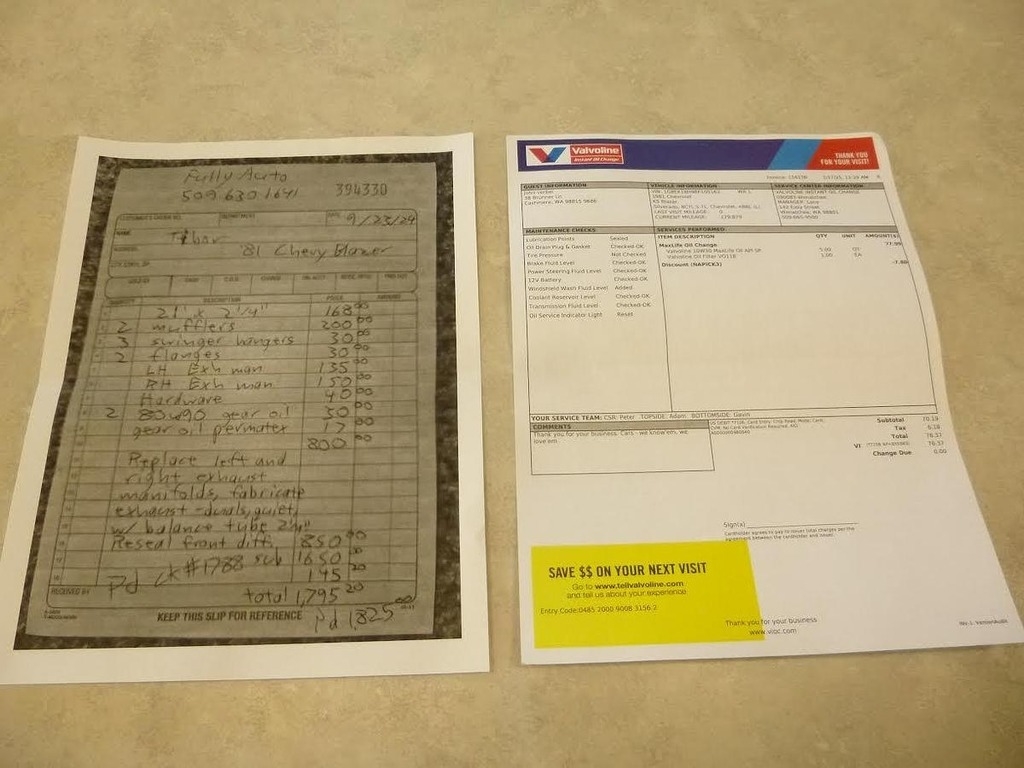 Fully Auto
509.630.1641
394330
CUSTOMER'S ORDER NO.
DEPARTMENT
DATE 9/23/24
NAME
Tibor
ADDRESS
'81 Chevy Blazer
CITY, STATE, ZIP
QUANTITY DESCRIPTION PRICE AMOUNT
21' x 2 1/4" 168 00
2 mufflers 200 00
3 swinger hangers 30 00
2 flanges 30 00
LH Exh man 135 00
RH Exh man 150 00
Hardware 40 00
2 80w90 gear oil 30 00
gear oil permatex 17 00
800 00
Replace left and
right exhaust
manifolds, fabricate
exhaust - duals, quiet,
w/ balance tube 2 1/4"
Reseal front diff. 850 00
Pd ck #1788 sub 1650 00
145 20
RECEIVED BY
total 1,795 20
KEEP THIS SLIP FOR REFERENCE
Pd 1,825 00
Valvoline
Instant Oil Change
THANK YOU
FOR YOUR VISIT!
GUEST INFORMATION
Cashmere, WA 98815
VEHICLE INFORMATION
1981 Chevrolet
K5 Blazer
LAST VISIT MILEAGE: 0
CURRENT MILEAGE:
SERVICE CENTER INFORMATION
VALVOLINE INSTANT OIL CHANGE
Wenatchee, WA 98801
MAINTENANCE CHECKS
Lubrication Points Sealed
Oil Drain Plug & Gasket Checked-OK
Tire Pressure Not Checked
Brake Fluid Level Checked-OK
Power Steering Fluid Level Checked-OK
12V Battery Checked-OK
Windshield Wash Fluid Level Added
Coolant Reservoir Level Checked-OK
Transmission Fluid Level Checked-OK
Oil Service Indicator Light Reset
SERVICES PERFORMED
ITEM DESCRIPTION QTY UNIT AMOUNT($)
MaxLife Oil Change 77.99
Valvoline 10W30 MaxLife Oil API SP 5.00 QT
Valvoline Oil Filter VO118 1.00 EA
Discount (NAPICK3) -7.80
YOUR SERVICE TEAM: CSR: Peter TOPSIDE: Adam BOTTOMSIDE: Gavin
COMMENTS
Thank you for your business. Cars - we know'em, we
love'em.
Subtotal 70.19
Tax 6.18
Total 76.37
VI 76.37
Change Due 0.00
Sign(x)
Cardholder agrees to pay to issuer total charges per the
agreement between the cardholder and issuer.
SAVE $$ ON YOUR NEXT VISIT
Go to www.tellvalvoline.com
and tell us about your experience
Entry Code:0485 2000 9008 3156 2
Thank you for your business
www.vioc.com